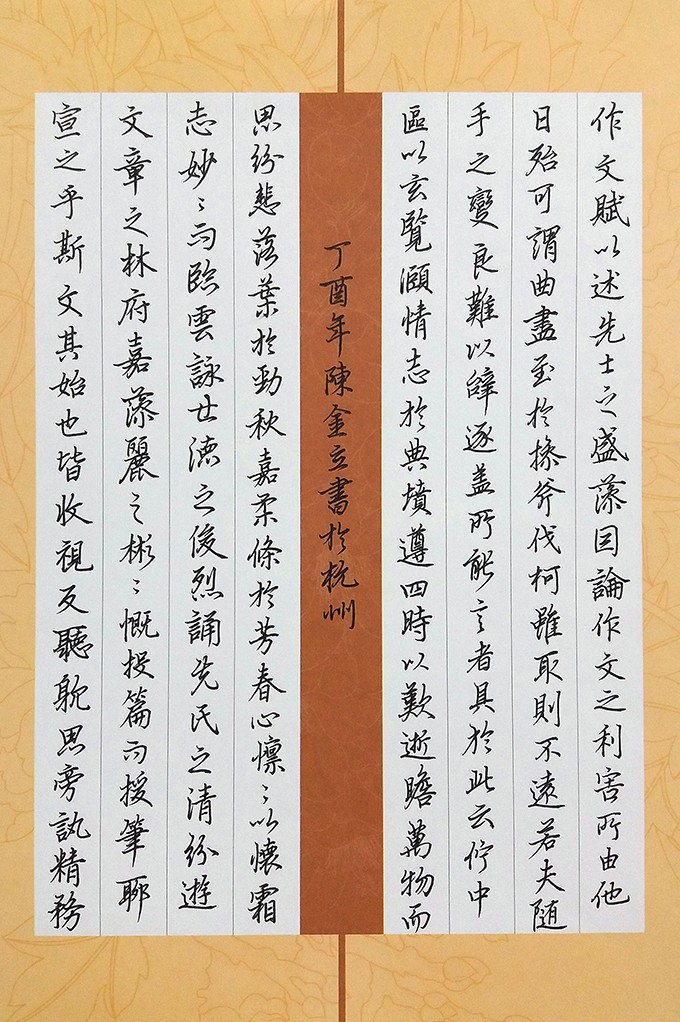 作文賦以述先士之盛藻因論作文之利害所由他
日殆可謂曲盡至於操斧伐柯雖取則不遠若夫随
手之變良難以辭逐盖所能言者具於此云佇中
區以玄覽頤情志於典墳遵四時以歎逝瞻萬物而
丁酉年陳金立書於杭州
思紛悲落葉於勁秋嘉柔條於芳春心懔〻以懷霜
志妙〻而臨雲詠世德之俊烈誦先民之清紛遊
文章之林府嘉藻麗之彬〻慨投篇而援筆聊
宣之乎斯文其始也皆收視反聽躭思旁訊精務